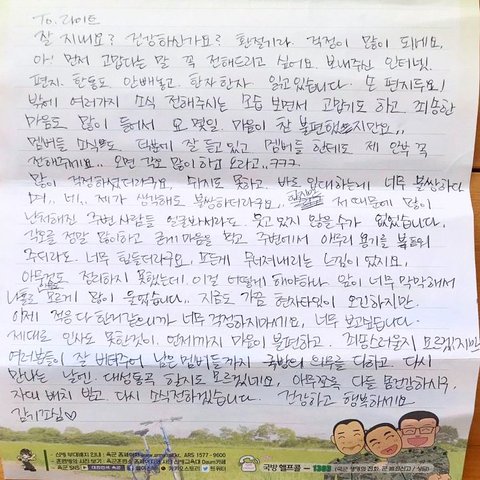 To. 라이트
잘 지내요? 건강하신가요? 환절기라. 걱정이 많이 되네요.
아! 먼저 고맙다는 말 꼭 전해드리고 싶어요. 보내주신 인터넷
편지. 한통도 안빼놓고. 한자한자. 읽고있습니다. 손 편지두요!
밖에 여러가지 소식 전해주시는 모습 보면서 고맙기도 하고. 죄송한
마음도 많이 들어서 요 몇일. 마음이 참 불편했지만요..
멤버들 소식도 덕분에 잘 듣고있고 멤버들 한테도 제 안부 꼭
전해주세요.. 오면 각오 많이 하고 오라고.. ㅋㅋㅋ
많이 걱정하셨더라구요. 쉬지도 못하고. 바로 입대하는게 너무 불쌍하다
며.. 네.. 제가 생각해도 불쌍하더라구요.. 저 때문에 많이
난처해진 주변 사람들 얼굴봐서라도. 웃고 있지 않을수가 없었습니다.
각오를 정말 많이하고 굳게마음을 먹고 주변에서 아무리 용기를 북돋워
주더라도. 너무 힘들더라구요. 모든게 무너져내리는 느낌이 있지요.
아무것도 정리하지 못했는데. 이걸 어떻게 해야하나 앞이 너무 막막해서
나홀로 모르게 많이 울었습니다.. 지금도 가끔 현자타임이 오긴하지만.
이제 적응 다 한거같으니까 너무 걱정하지마세요. 너무 보고싶습니다.
제대로 인사도 못한것이. 언제까지 마음이 불편하고. 죄스러울지 모르겠지만
여러분들이 잘 버텨주어 남은 멤버들까지 국방의 의무를 다하고. 다시
만나는 날엔 대성통곡 할지도 모르겠네요. 아무쪼록 다들 몸건강하시구.
자대 배치 받고. 다시 소식전하겠습니다. 건강하고 행복하세요
국방 헬프콜 - 1303